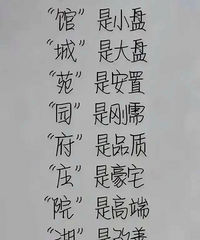 “馆”是小盘
“城”是大盘
“苑”是安置
“园”是刚需
“府”是品质
“庄”是豪宅
“院”是高端
“湖”是改善